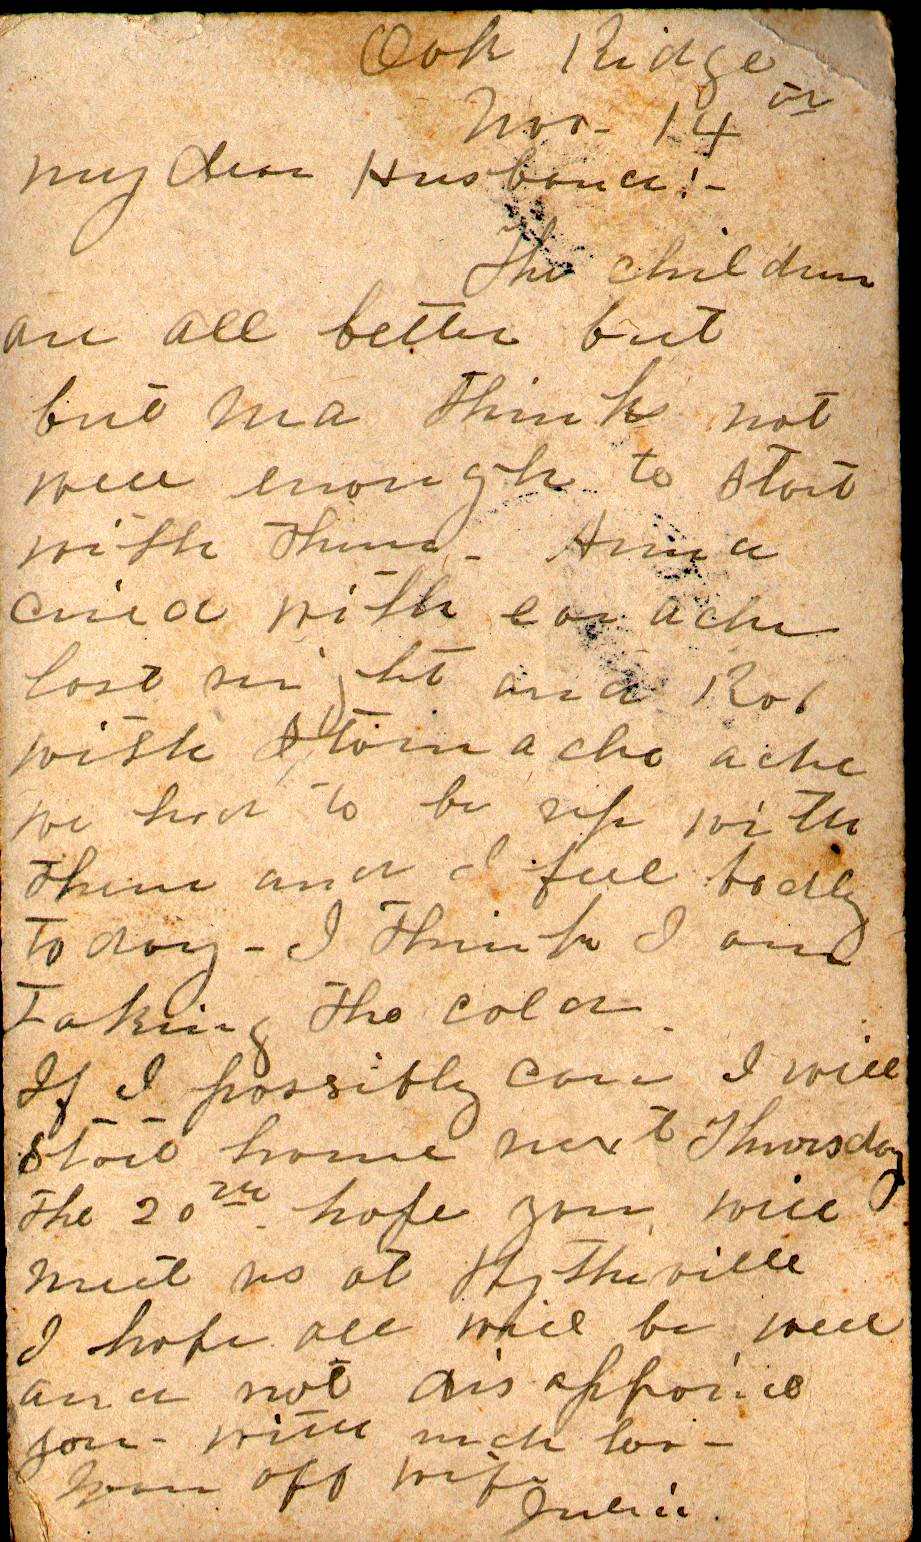 Oak Ridge
Nov- 14 th
my dear Husband!-
The children
are all better but
but Ma thinks not
well enough to start
with them- Anna
cried with ear ache
last night and Rob
with Stomache ache
we had to be up with
them and I feel badly
today - I think I am
taking the cold.
If I possibly can I will
start home next Thursday
the 20th hope you will
meet us at Wytheville
I hope all will be well
and not disappoint
you- with much love-
Your aff wife
Julia.